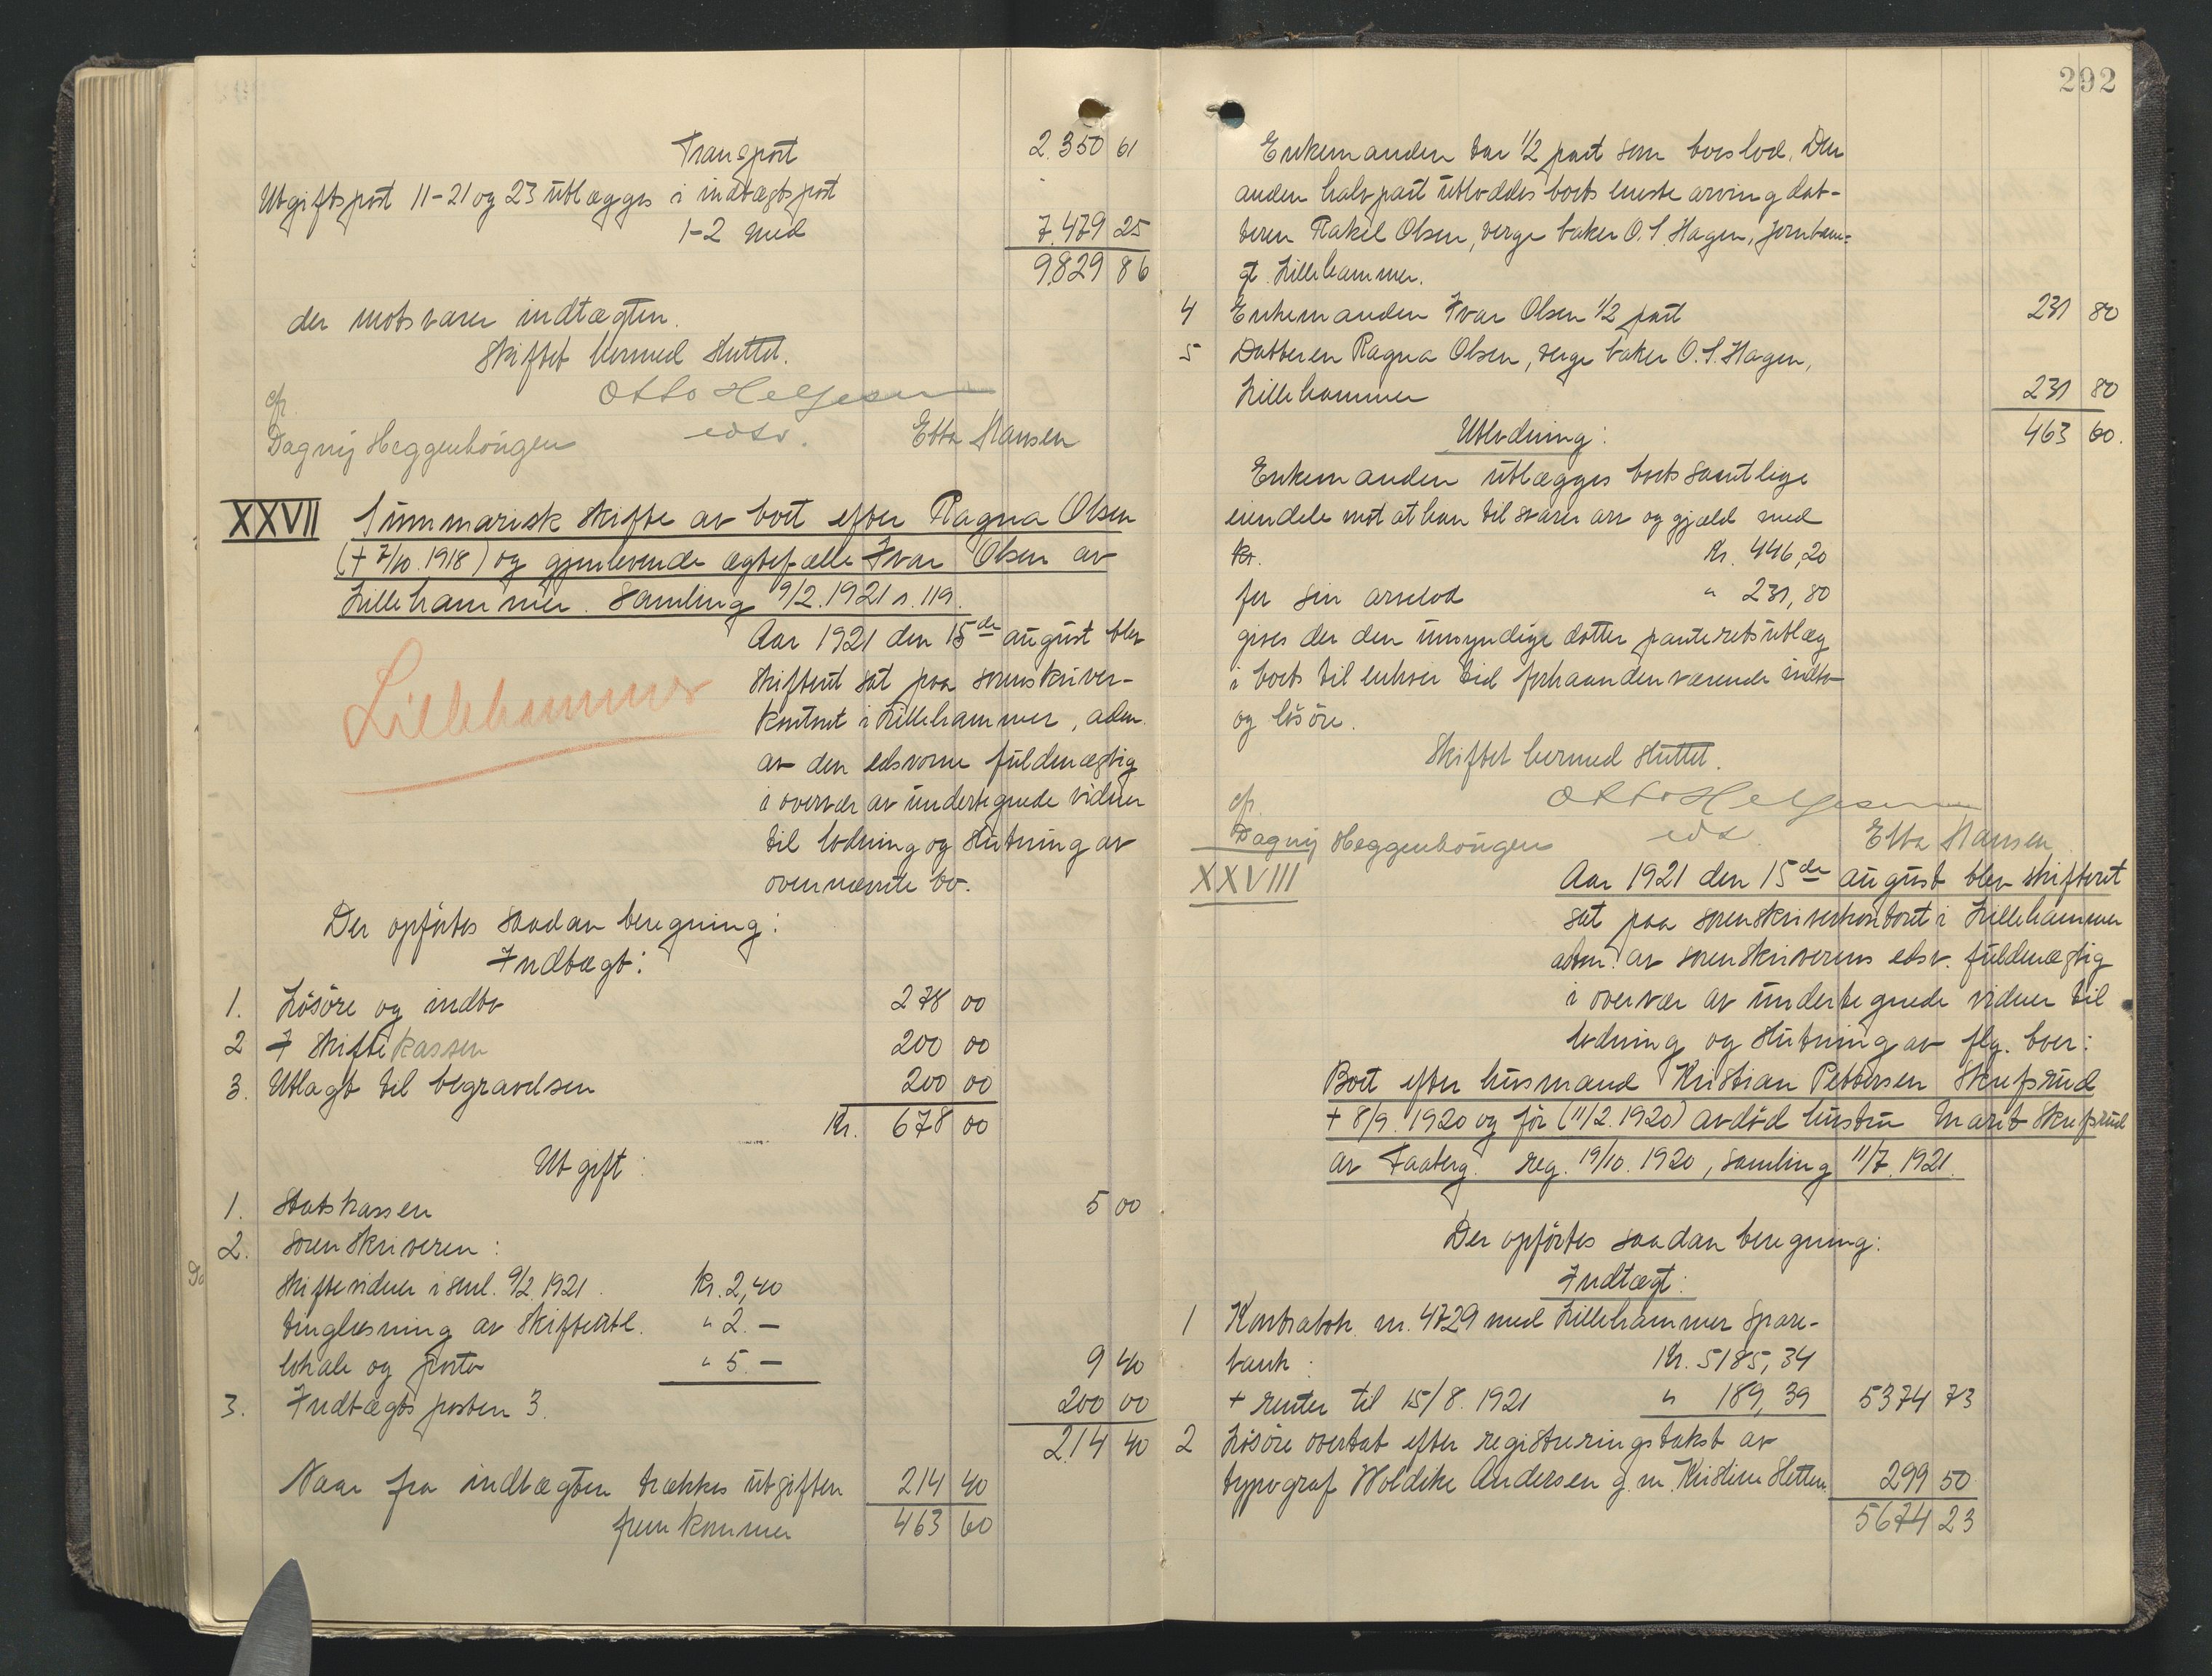 Transport 2.350 61
Utgiftspost 11-21 og 23 utlægges i indtægtspost
1-2 med 7.479 25
9829 86
der motsvarer indtægten.
Skiftet hermed sluttet.
Otto Helgesen
cfr. edsv.
Dagny Heggenhougen Etta Hansen
XXVII Summarisk skifte av boet efter Ragna Olsen
(+ 7/10 1918) og gjenlevende ægtefælle Ivar Olsen av
Lillehammer. Samling 9/2. 1921 s. 119.
Aar 1921 den 15de august blev
skifteret sat paa sorenskriver-
kontoret i Lillehammer, adm.
av den edsvorne fuldmægtig
i overvær av undertegnede vidner
til lodning og slutning av
ovennævnte bo.
Lillehammer
Der opførtes saadan beregning:
Indtægt:
1. Løsøre og indbo 278 00
2 I skiftekassen 200 00
3. Utlagt til begravelsen 200 00
Kr. 678 00
Utgift:
1. Statskassen 5 00
2. Sorenskriveren:
skiftevidner i saml. 9/2. 1921. Kr. 2,40
tinglæsning av skifteutl. " 2.—
lokale og porto " 5.— 9 40
3. Indtægtsposten 3. 200 00
214 40
Naar fra indtægten trækkes utgiften 214 40
fremkommer 463 60
292
Enkemanden tar 1/2 part som boeslod. Den
anden halvpart utloddes boets eneste arving dat-
teren Rakel Olsen, verge baker O. S. Hagen, Jernbane-
gt. Lillehammer.
4 Enkemanden Ivar Olsen 1/2 part 231 80
5 Datteren Ragna Olsen, verge baker O. S. Hagen,
Lillehammer 231 80
Utlodning: 463 60.
Enkemanden utlægges boets samtlige
eiendele mot at han tilsvarer arv og gjæld med
kr. Kr. 446,20
for sin arvelod " 231,80
gives der den umyndige datter panteretsutlæg
i boets til enhver tid forhaandenværende indbo
og løsøre.
Skiftet hermed sluttet.
cfr. Otto Helgesen
Dagny Heggenhougen eds. Etta Hansen
XXVIII Aar 1921 den 15de august blev skifteret
sat paa sorenskriverkontoret i Lillehammer
adm. av sorenskriverens edsv. fuldmægtig
i overvær av undertegnede vidner til
lodning og slutning av flg. boer:
Boet efter husmand Kristian Pettersen Skrefsrud
+ 8/9. 1920 og før (11/2. 1920) avdød hustru Marit Skrefsrud
av Faaberg. reg. 19/10. 1920, samling 11/7. 1921.
Der opførtes saadan beregning:
Indtægt:
1 Kontrabok nr. 4729 med Lillehammer Spare-
bank: Kr. 5185,34
+ renter til 15/8. 1921 " 189,39 5374 73
2 Løsøre overtat efter registreringstakst av
typograf Woldike Andersen g. m. Kristine Sletten 299 50
5674 23